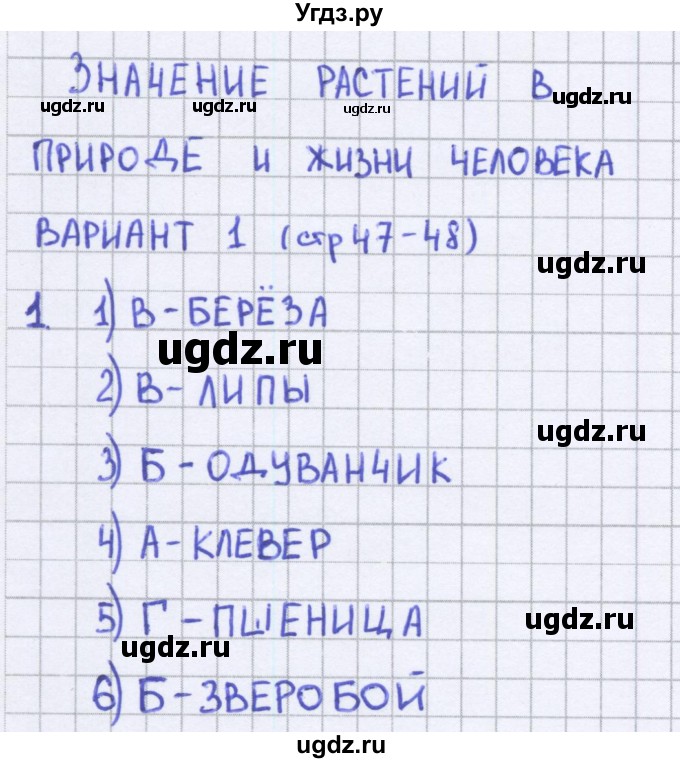 Угдз.ру
ЗНАЧЕНИЕ РАСТЕНИЙ В
ugdz.ru ugdz.ru ugdz.ru ugdz.ru
ПРИРОДЕ И ЖИЗНИ ЧЕЛОВЕКА
ВАРИАНТ 1 (стр 47-48)
ugdz.ru
1. 1) В - БЕРЁЗА
ugdz.ru
2) В - ЛИПЫ
ugdz.ru
3) Б - ОДУВАНЧИК
4) А - КЛЕВЕР
5) Г - ПШЕНИЦА
ugdz.ru
ugdz.ru
6) Б - ЗВЕРОБОЙ
ugdz.ru
ugdz.ru